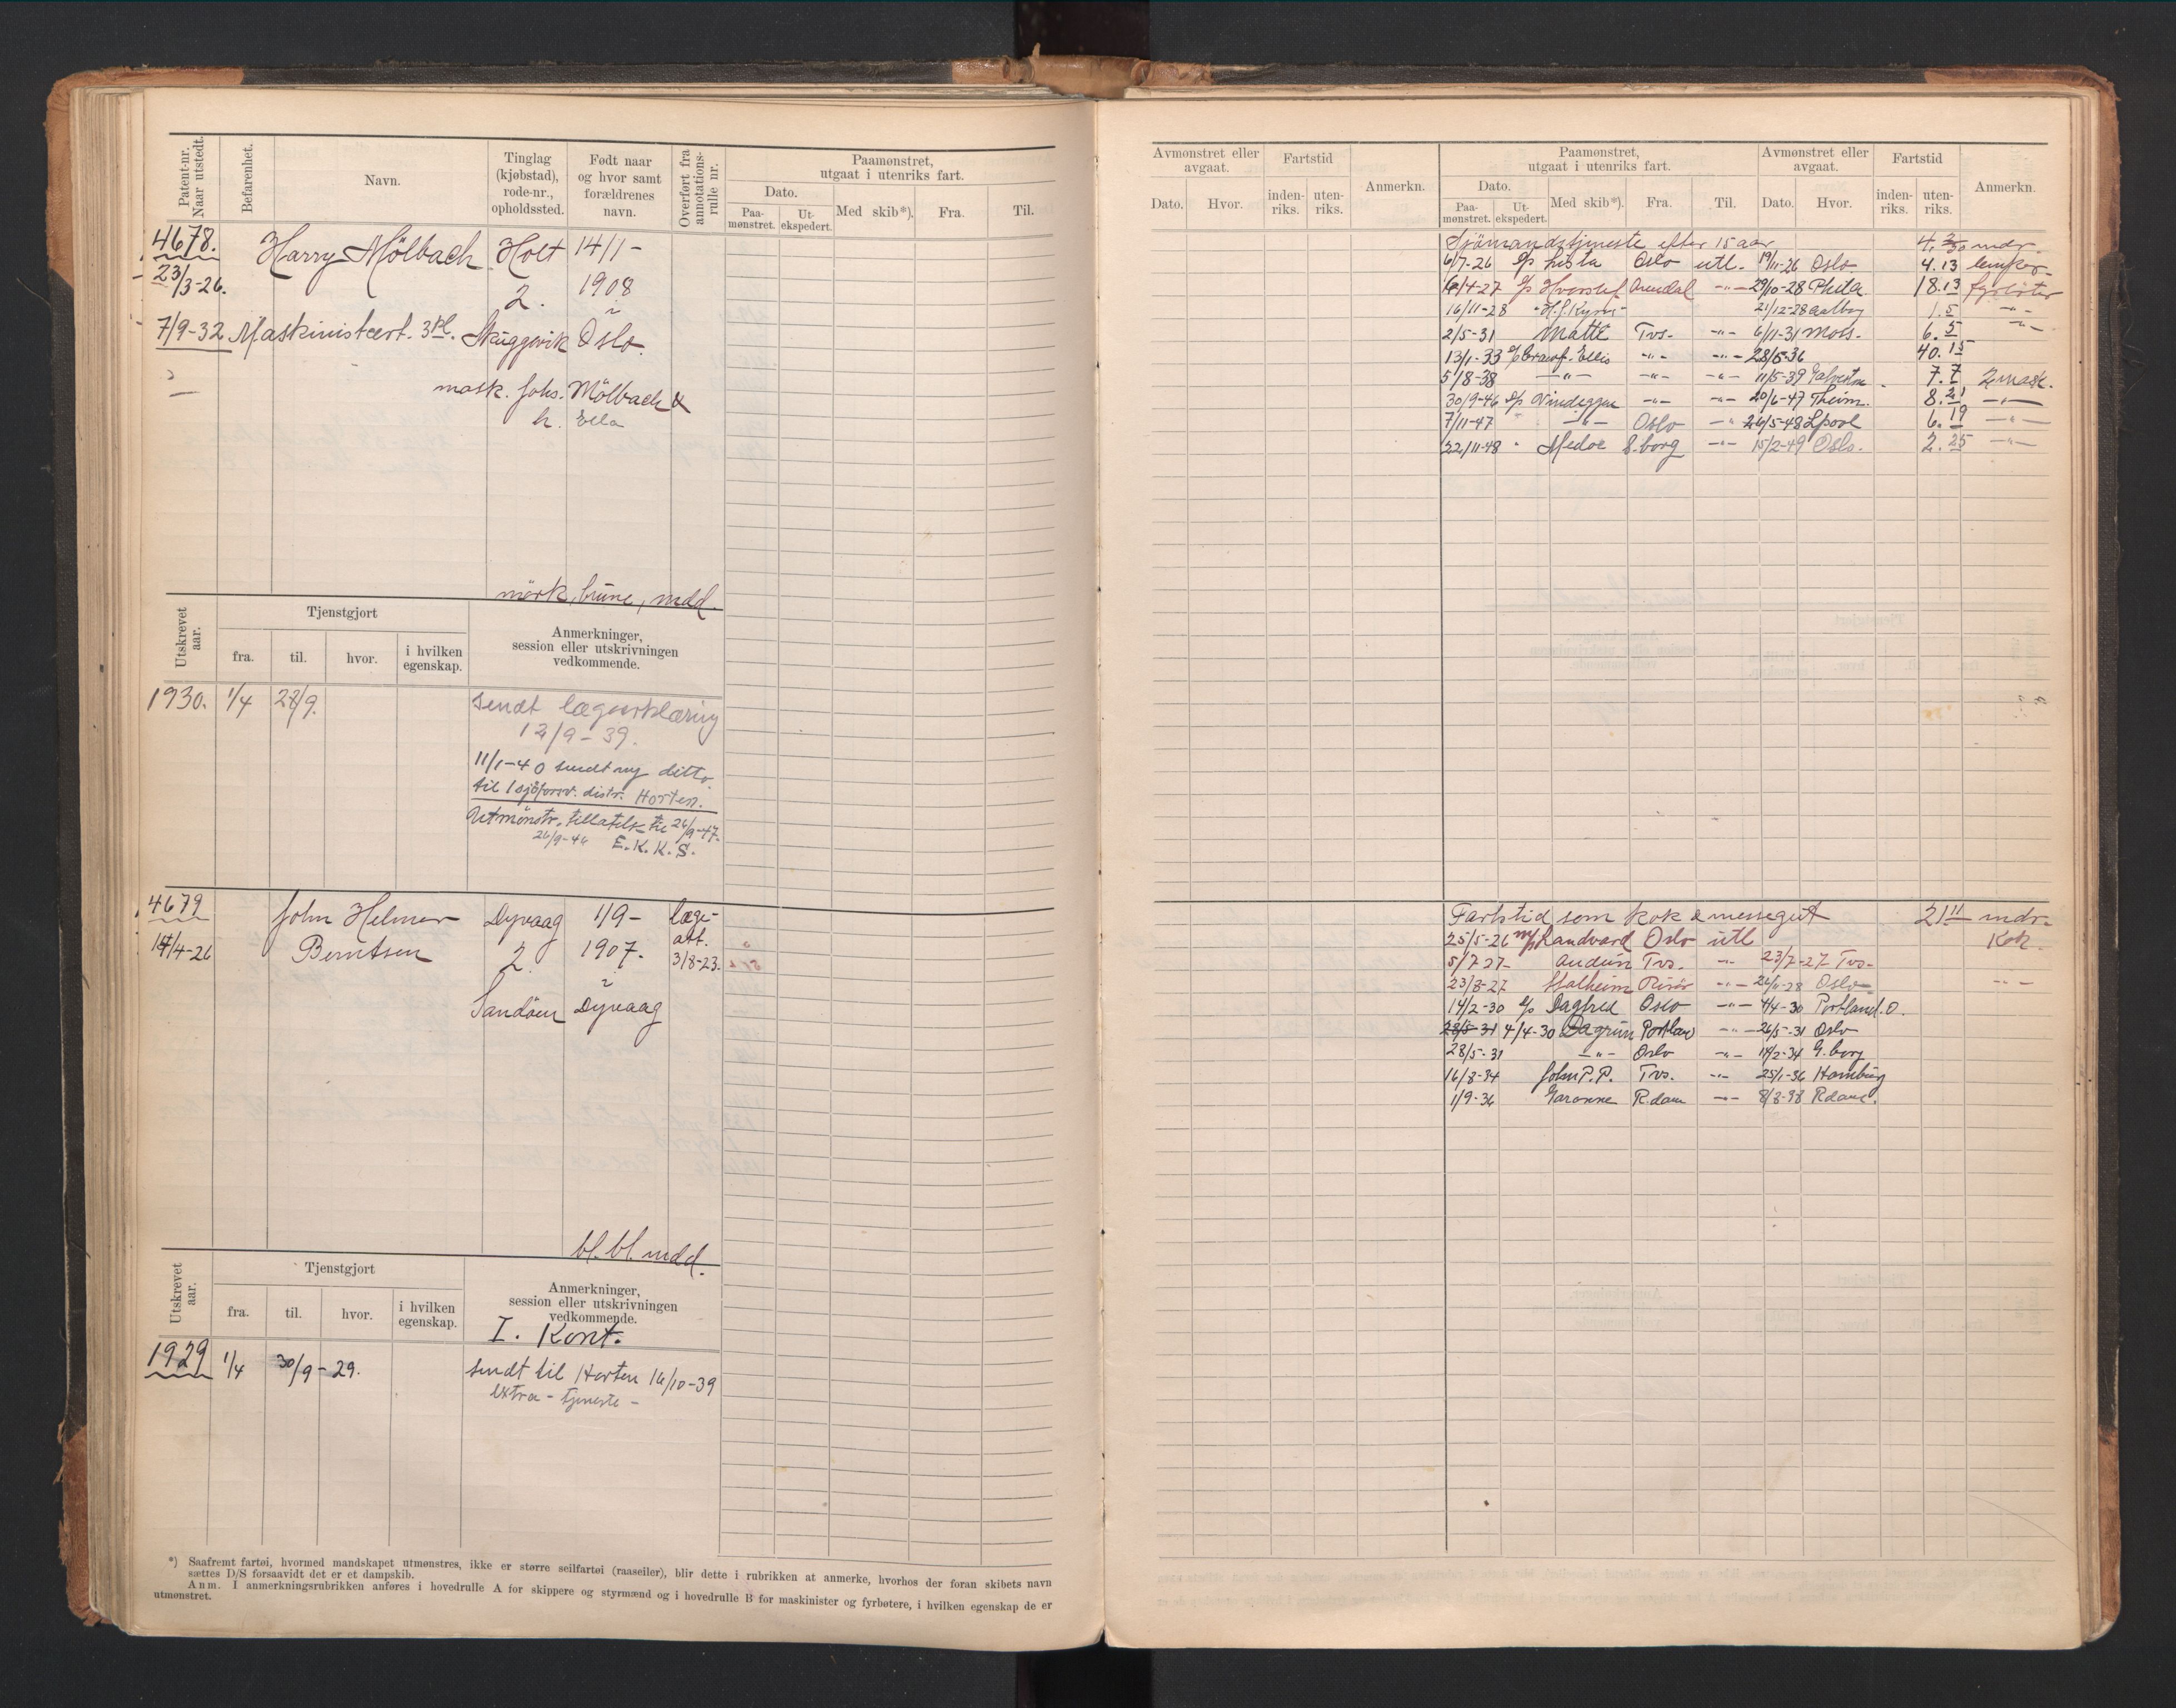 Patent-nr. Naar utstedt.
Befarenhet.
Navn.
Tinglag (kjøbstad), rode-nr., opholdssted.
Født naar og hvor samt forældrenes navn.
Overført fra annotations-rulle nr.
Paamønstret, utgaat i utenriks fart.
Dato.
Paa-mønstret. Ut-ekspedert. Med skib*). Fra. Til.
4678. Harry Mölbach Holt 14/1-
23/3-26. 2. 1908
7/9-32 Maskinistcert. 3kl. Skuggevik Oslo.
mask. Johs. Mölbach &
h. Ella
mörk, brune, mdd.
Utskrevet aar.
Tjenstgjort
fra. til. hvor. i hvilken egenskap.
Anmerkninger, session eller utskrivningen vedkommende.
1930. 1/4 28/9. sendt lægeerklæring
12/9-39.
11/1-40 sendt ny ditto
til 1 sjøforsv. distr. Horten.
Utmönstr. tillatelse til 26/9-47.
26/9-46 E.K.K.S.
4679 John Helmer Dyvaag 1/9- læge-
14/4-26 Berntsen 2. 1907. att.
3/8-23.
Sandöen Dyvaag
bl. bl. mdd.
Utskrevet aar.
Tjenstgjort
fra. til. hvor. i hvilken egenskap.
Anmerkninger, session eller utskrivningen vedkommende.
I. Kont.
1929 1/4 30/9-29. sendt til Horten 16/10-39
extra-tjeneste-
*) Saafremt fartøi, hvormed mandskapet utmønstres, ikke er større seilfartøi (raaseiler), blir dette i rubrikken at anmerke, hvorhos der foran skibets navn
sættes D/S forsaavidt det er et dampskib.
Anm. I anmerkningsrubrikken anføres i hovedrulle A for skippere og styrmænd og i hovedrulle B for maskinister og fyrbøtere, i hvilken egenskap de er
utmønstret.
Avmønstret eller avgaat.
Fartstid
Anmerkn.
Dato. Hvor. inden-riks. uten-riks.
Paamønstret, utgaat i utenriks fart.
Avmønstret eller avgaat.
Fartstid
Anmerkn.
Dato.
Paa-mønstret. Ut-ekspedert. Med skib*). Fra. Til. Dato. Hvor. inden-riks. uten-riks.
Sjömandstjeneste efter 15 aar 4. mdr.
6/7-26 Lista Oslo utl. 19/11-26 Oslo 4.13 lemper
/4-27 Arendal -"- 29/10-28 18.13 fyrböter
16/11-28 21/12-28 Aalborg 1.5 -"-
2/5-31 Matte Tvs. -"- 6/11-31 Moss. 6.5 -"-
13/1-33 Ellis -"- -"- 28/5-36 40.15
5/8-38 -"- -"- -"- 11/5-39 Galveston 7.7 2 mask.
30/9-46 Vindeggen -"- -"- 20/6-47 Theim. 8.21 -"-
7/11-47 -"- Oslo -"- 26/5-48 Lpool 6.19 -"-
22/11-48 Medoc S.borg -"- 15/2-49 Oslo. 2.25 -"-
Fartstid som kok & messegut 21 11 mdr.
25/5-26 Randvard Oslo utl Kok.
5/7 27- Audun Tvs. -"- 23/7-27 Tvs-
23/8-27 Stalheim Risör -"- 26/11-28 Oslo- -"-
14/2-30 Dagfred Oslo -"- 4/4-30 Portland.O.
28/5-31 4/4-30 Dagrun Portland -"- 26/5-31 Oslo
28/5-31 -"- Oslo -"- 14/2-34 G.borg
16/8-34 John P.P. Tvs. -"- 25/1-36 Hamburg
1/9-36 Garonne R.dam -"- 8/8-38 R.dam.